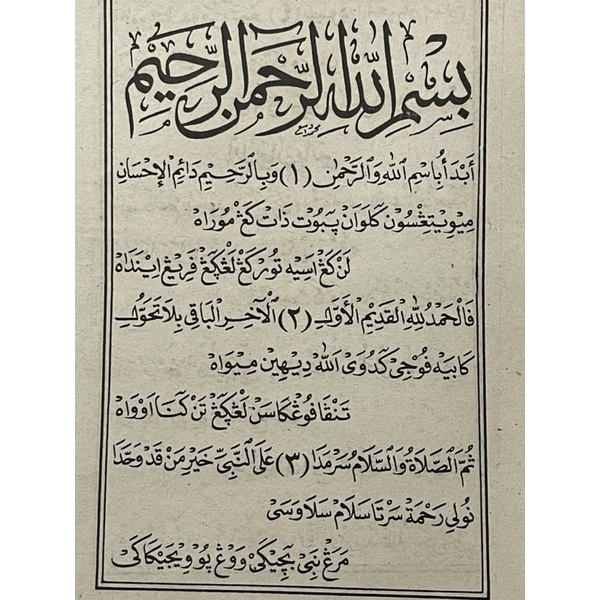 بِسْمِ اللهِ الرَّحْمنِ الرَّحِيْمِ
أَبْدَأُ بِاسْمِ اللهِ وَالرَّحْمٰنِ (١) وَبِالرَّحِيْمِ دَائِمِ الْإِحْسَانِ
ميويتڠسون كلوان پبوت ذات كڠ موراه
لن كڠ اسيه تور كڠ لڠڮڠ فريڠ اينداه
فَالْحَمْدُ لِلّٰهِ الْقَدِيْمِ الْأَوَّلِ (٢) اَلْآخِرِ الْبَاقِيْ بِلَا تَحَوُّلِ
كابيه فوجي كدوى الله ديهين ميواه
تنڤا فوڠكاسن لڠڮڠ تن كنا اوواه
ثُمَّ الصَّلَاةُ وَالسَّلَامُ سَرْمَدَا (٣) عَلَى النَّبِيِّ خَيْرِ مَنْ قَدْ وَحَّدَا
نولي رحمة سرتا سلام سلاوسى
مرڠ نبي بچيكى ووڠ پوويجيكاكى